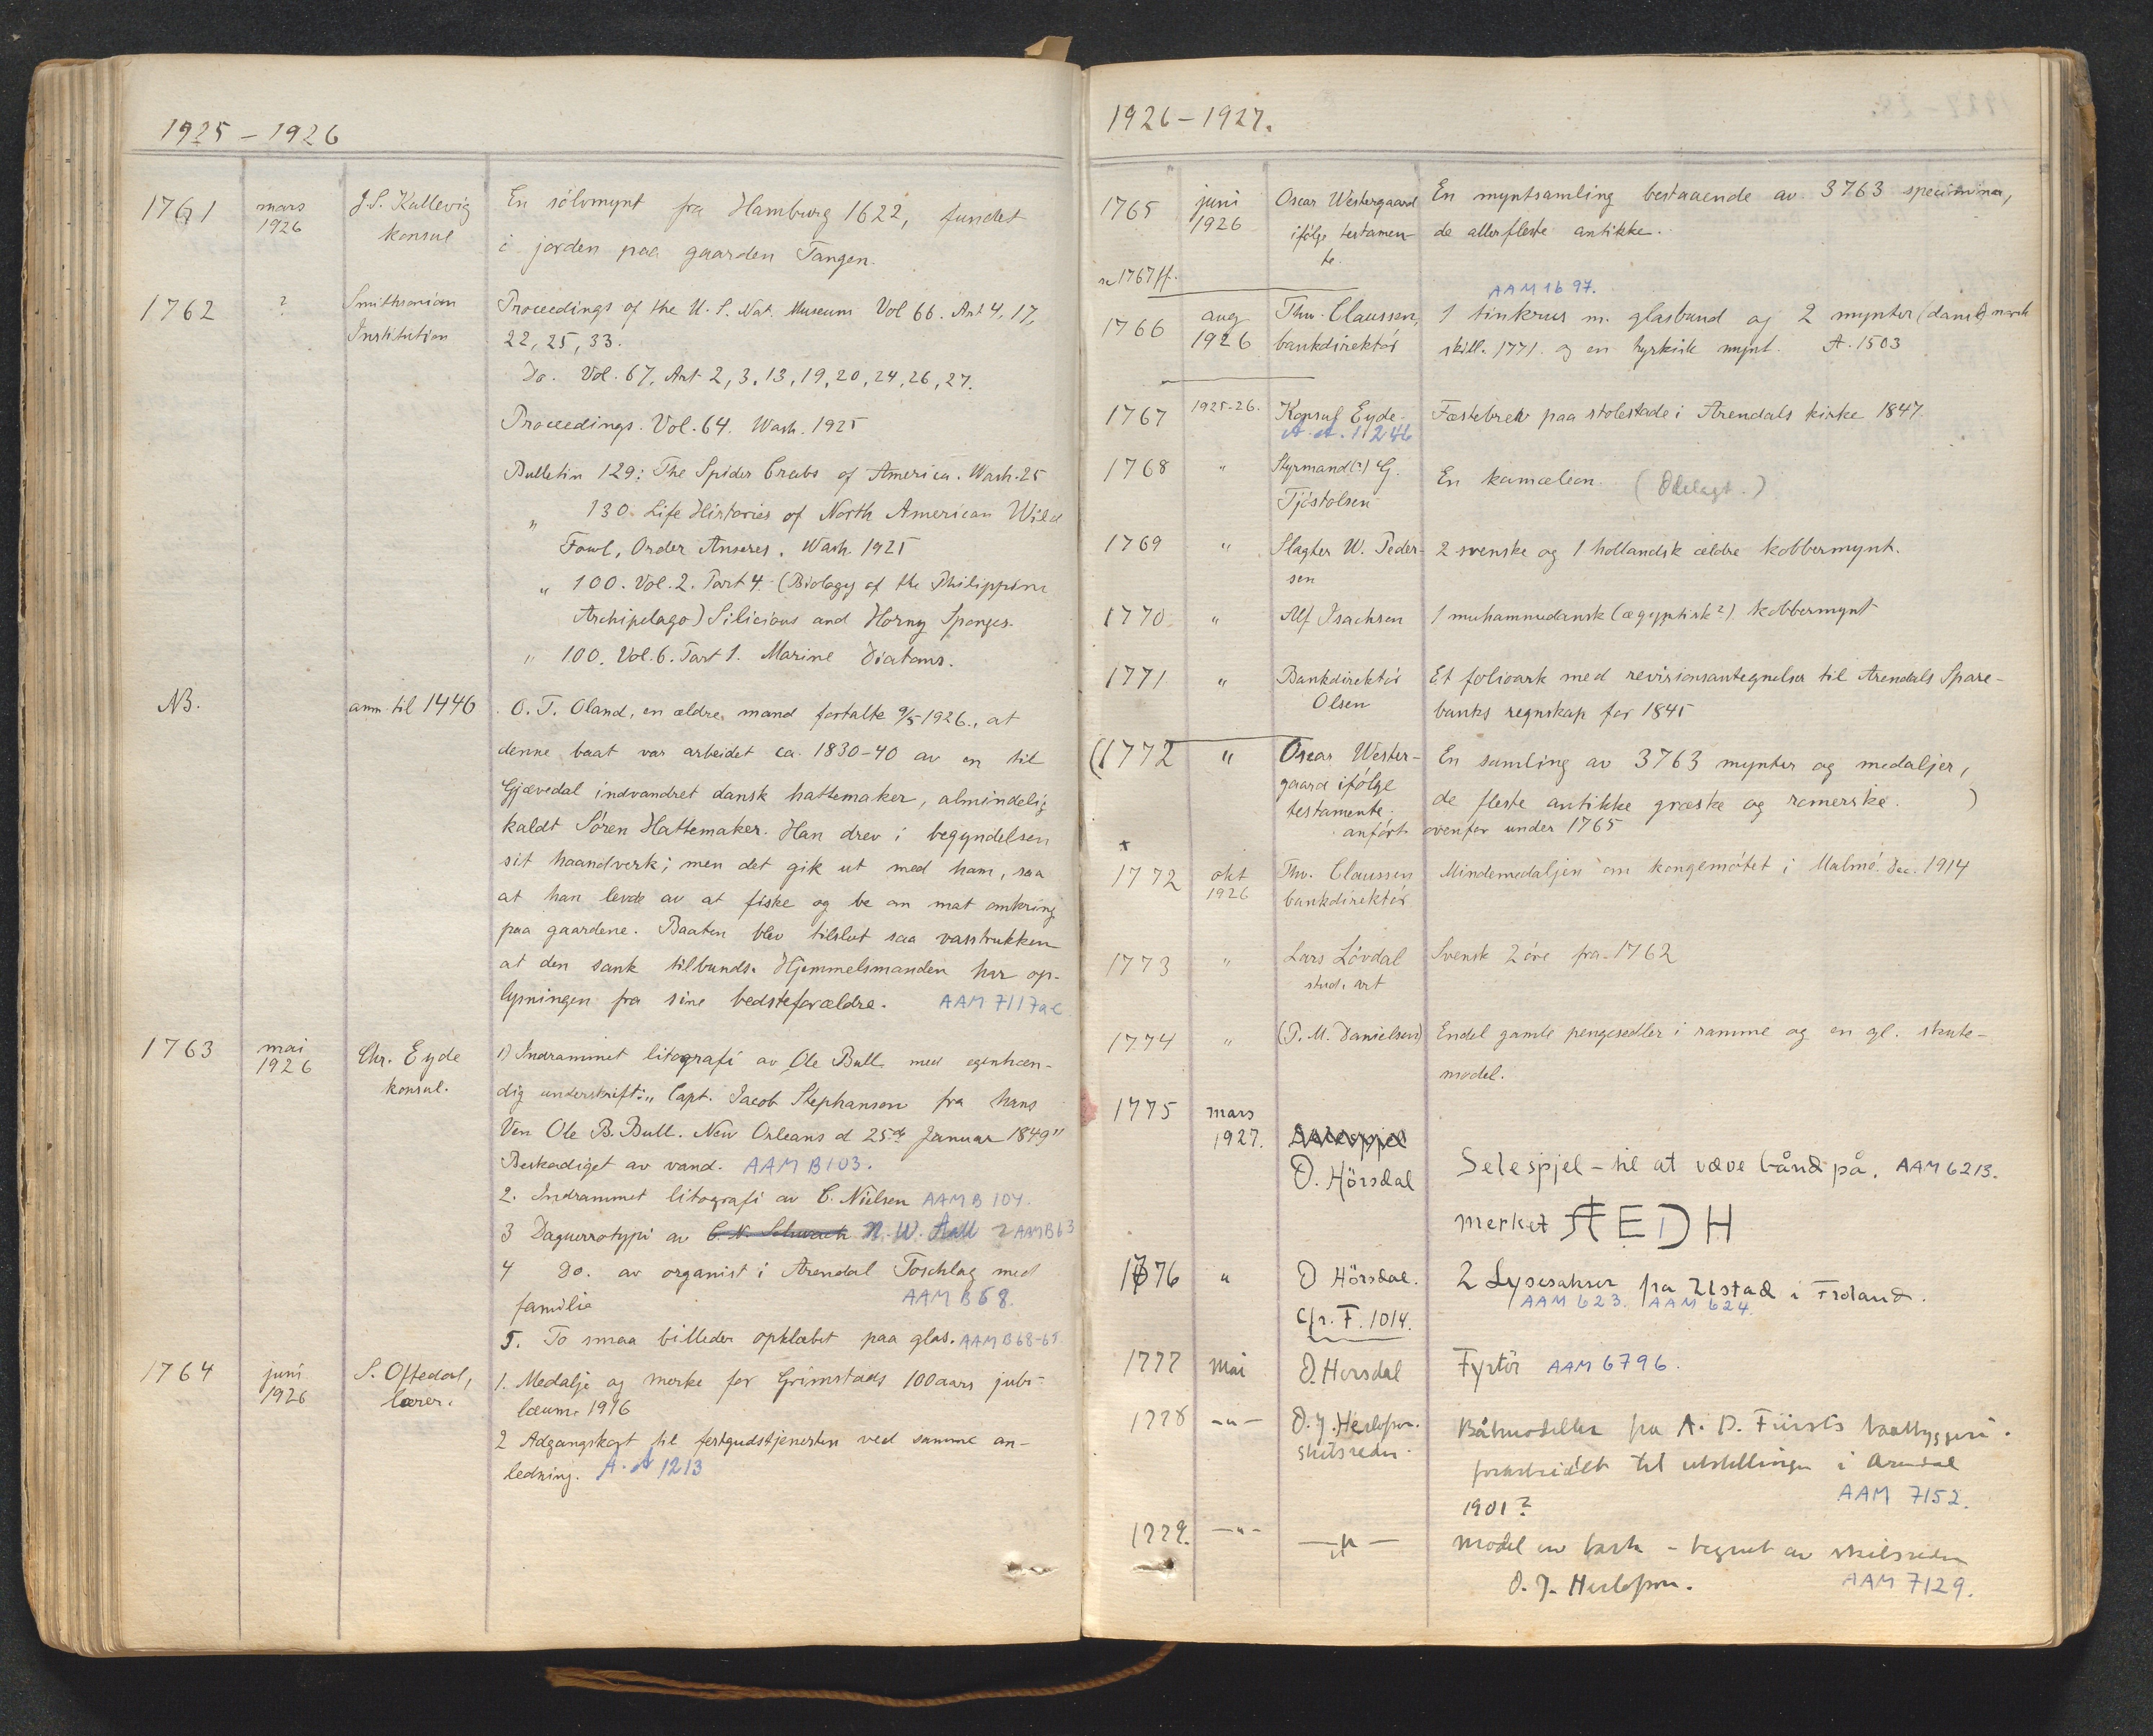 1925 - 1926
1761 mars 1926 J.S. Kallevig konsul En sölvmynt fra Hamburg 1622, fundet
i jorden paa gaarden Tangen.
1762 ? Smithsonian Institution Proceedings of the U.S. Nat. Museums Vol 66. Art 4, 17,
22, 25, 33.
Do. Vol. 67. Art 2, 3, 13, 19, 20, 24, 26, 27.
Proceedings. Vol. 64. Wash. 1925
Bulletin 129: The Spider Crabs of America. Wash. 25
„ 130. Life Histories of North American Wild
Fowl, Order Anseres. Wash. 1925
„ 100. Vol. 2. Part 4. (Biology of the Philippine
Archipelago) Silicious and Horny Sponges.
„ 100. Vol. 6. Part 1. Marine Diatoms.
NB. anm. til 1446 O. T. Oland, en ældre mand fortalte 9/5 1926, at
denne baat var arbeidet ca. 1830-40 av en til
Gjævedal indvandret dansk hattemaker, almindelig
kaldt Sören Hattemaker. Han drev i begyndelsen
sit haandverk; men det gik ut med ham, saa
at han levde av at fiske og be om mat omkring
paa gaardene. Baaten blev tilslut saa vasstrukken
at den sank tilbunds. Hjemmelsmanden har op-
lysningen fra sine bedsteforældre. AAM 7117a-c
1763 mai 1926 Chr. Eyde konsul. 1) Indrammet litografi av Ole Bull med egenhæn-
dig underskrift: „Capt. Jacob Stephansen fra hans
Ven Ole B. Bull. New Orleans d 25de Januar 1849"
Beskadiget av vand. AAM B103.
2. Indrammet litografi av C. Nielsen AAM B 104.
3 Daguerrotypi av C. N. Schwach N. W. Aall AAM B63
4 Do. av organist i Arendal Poschlag med
familie AAM B68.
5. To smaa billeder opklæbet paa glas. AAM B68-65
1764 juni 1926 S. Oftedal, lærer. 1. Medalje og merke for Grimstads 100aars jubi-
læum. 1916
2 Adgangskort til festgudstjenesten ved samme an-
ledning. A. A 1213
1926 - 1927.
1765 juni 1926 Oscar Westergaard ifölge testamen- te. En myntsamling bestaaende av 3763 specimina,
de allerfleste antikke.
1767 ff.
AAM 1697.
1766 aug 1926 Thv. Claussen, bankdirektör 1 tinkrus m. glasbund og 2 mynter (dansk) norsk
skill. 1771. og en tyrkisk mynt. A. 1503
1767 1925-26. Konsul Eyde. Fæstebrev paa stolestade i Arendals kirke 1847
A. A. 11246
1768 " Styrmand(?) G. Tjöstolsen En kamæleon. (Ödelagt.)
1769 " Slagter W. Peder- sen 2 svenske og 1 hollandsk ældre kobbermynt.
1770 " Alf Isachsen 1 muhammedansk (ægyptisk?) kobbermynt
1771 " Bankdirektör Olsen Et folioark med revisionsantegnelser til Arendals Spare-
banks regnskap for 1845
(1772 " Oscar Wester- gaard ifölge testamente, En samling av 3763 mynter og medaljer,
de fleste antikke græske og romerske. )
anfört ovenfor under 1765
x
1772 okt 1926 Thv. Claussen bankdirektör Mindemedaljen om kongemötet i Malmö. Dec. 1914
1773 " Lars Lövdal stud. art Svensk 2 öre fra 1762
1774 " (P. M. Danielsen) Endel gamle pengesedler i ramme og en gl. skute-
model.
1775 mars 1927. O. Hörsdal Selespjel - til at væve bånd på. AAM 6213.
merket AEDH
1776 " O Hörsdal. 2 Lysesakser fra Ustad i Froland.
AAM 623. AAM 624.
Cfr. F. 1014.
1777 mai O. Horsdal Fyrtöi AAM 6796.
1778 -"- O. J. Herlofson. skibsreder. Båtmodeller fra A. D. Fürsts baatbyggeri.
forarbeidet til utstillingen i Arendal
1901? AAM 7152.
1779. -"- -"- Model av bark - tegnet av skibsreder
O. J. Herlofson. AAM 7129.